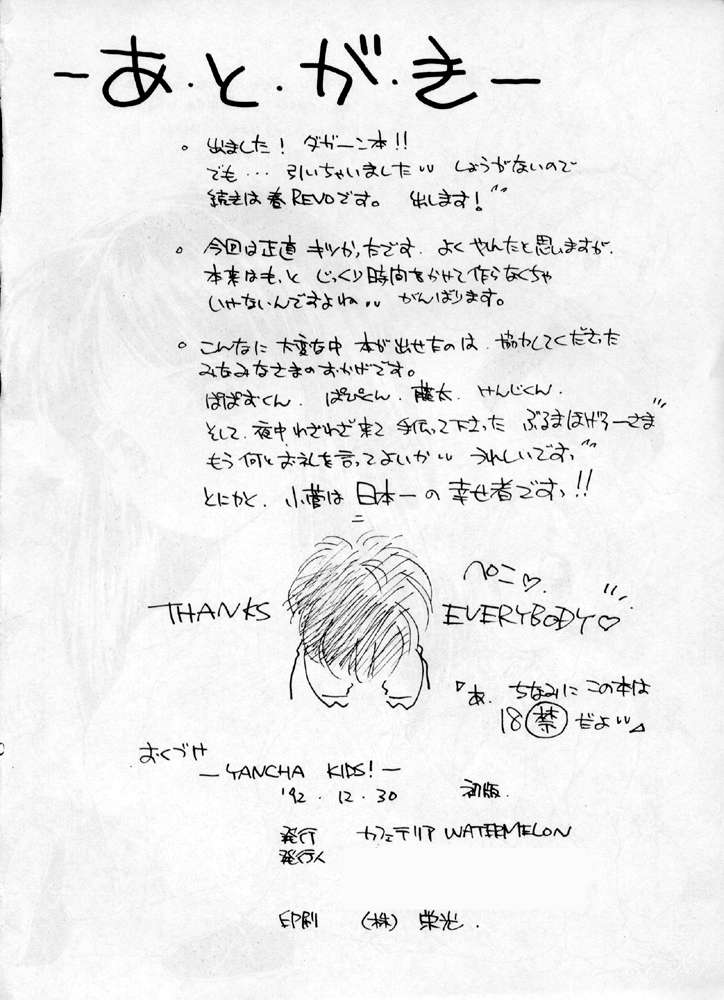 -あ・と・が・き-
。出ました! ダガーン本!!
でも… 引いちゃいました〃 しょうがないので
続きは春REVOです。 出します!〃
。今回は正直 キツかったです. よくやんたと思いますが.
本来はもっと じっくり時間をかせて作らなくちゃ
いけないんですよね〃 がんばります。
。こんなに 大変な中 本が出せたのは. 協力してくださった
みなみなさまのおかげです。
ぱぱすくん. ぱぴくん. 藤太. けんじくん.
そして. 夜中わざわざ来て 手伝って下さった ぶるまほげろーさま〃
もう何とお礼を言ってよいか〃 うれしいですっ〃
とにかく. 小菅は 日本一の 幸せ者ですっ!!
ペこ♡.
THANKS EVERYBODY♡
『あ. ちなみに この本は
18禁だよ〃』
おくづけ
-YANCHA KIDS!-
'92.12.30 初版.
発行 カフェテリア WATERMELON
発行人
印刷 (株) 栄光.